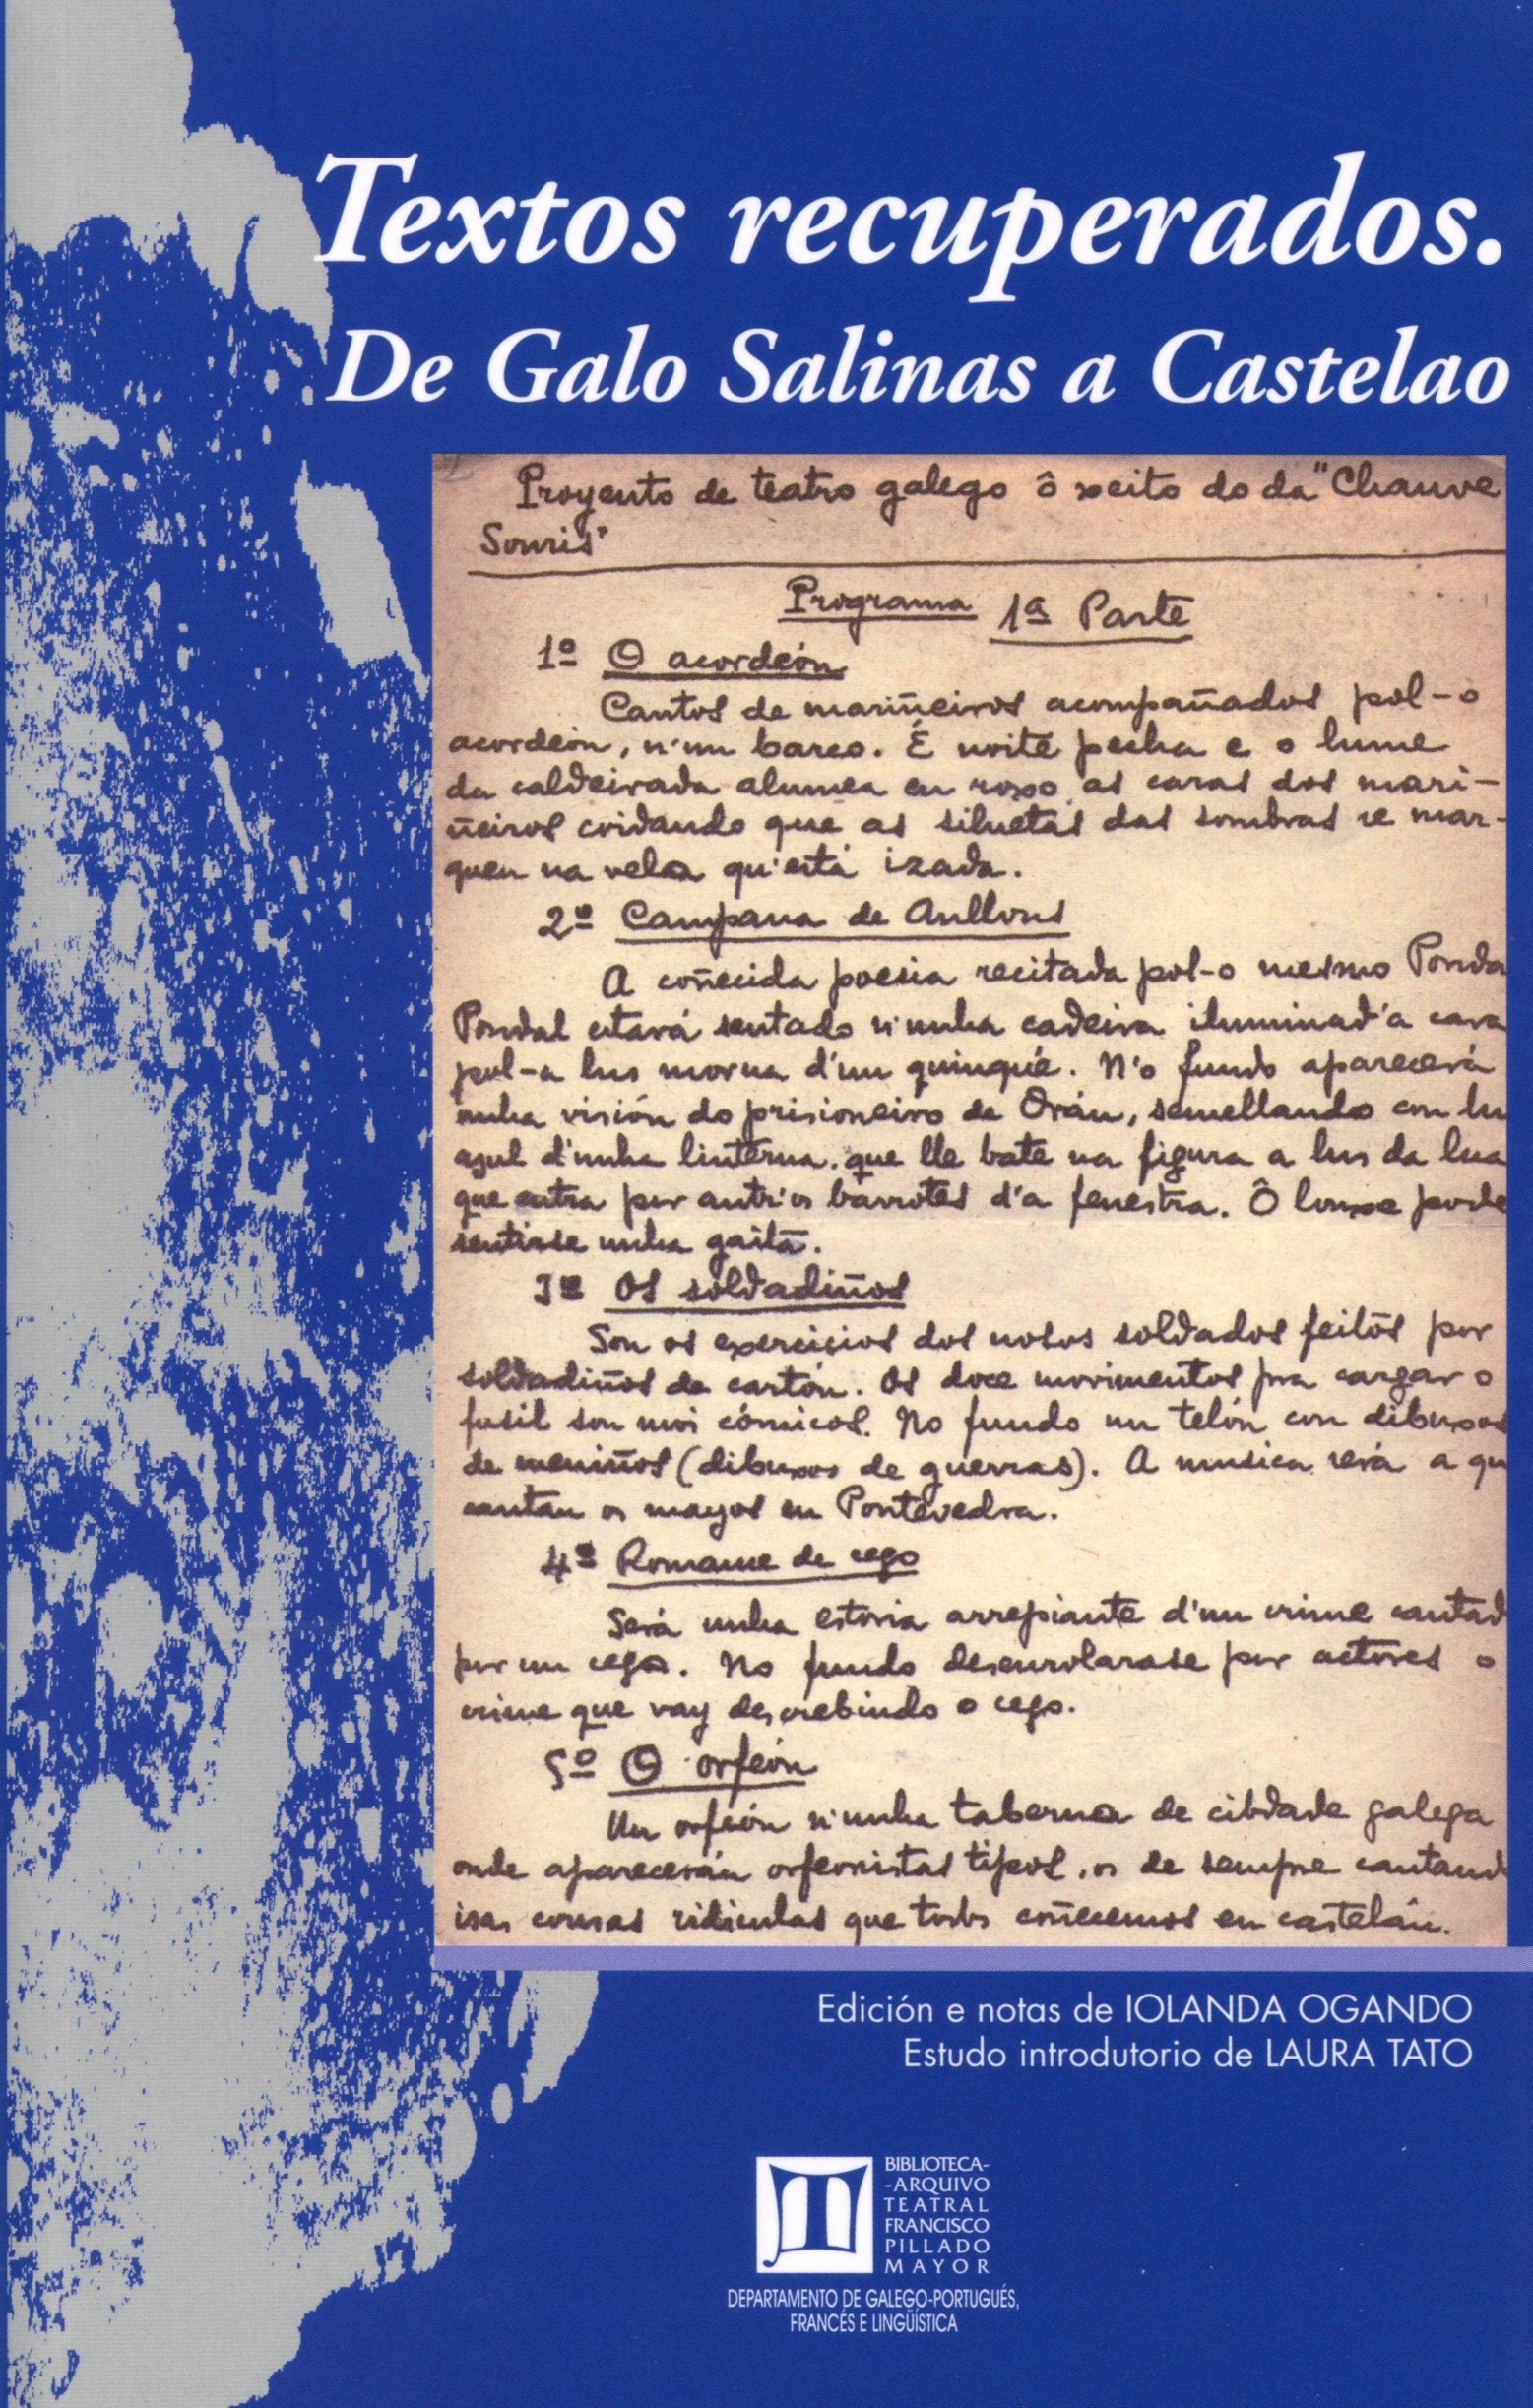 Textos recuperados.
De Galo Salinas a Castelao
Proyento de teatro galego ô xeito do da "Chauve
Souris"
Programa 1ª Parte
1º O acordeón
Cantos de mariñeiros acompañados pol-o
acordeón, n'un barco. É noite pecha e o lume
da caldeirada alumea en roxo as caras dos mari-
ñeiros coidando que as siluetas das sombras se mar-
quen na vela qu'está izada.
2º Campana de Anllons
A coñecida poesia recitada pol-o mesmo Ponda
Pondal estará sentado n'unha cadeira iluminad'a cara
pol-a lus morna d'un quinqué. N'o fundo aparecerá
unha visión do prisioneiro de Orán, semellando con lu
azul d'unha linterna que lle bate na figura a lus da lua
que entra por antr'os barrotes d'a fenestra. Ô lonxe pode
sentirse unha gaita.
3º Os soldadiños
Son os exercicios dos nosos soldados feitos por
soldadiños de cartón. Os doce movimentos pra cargar o
fusil son moi cómicos. No fundo un telón con dibuxos
de meniños (dibuxos de guerras). A musica será a qu
cantan os mayos en Pontevedra.
4º Romance de cego
Será unha estoria arrepiante d'un crime cantad
por un cego. No fundo desenrolarase por actores o
crime que vay descrebindo o cego.
5º O orfeón
Un orfeón n'unha taberna de cibdade galega
onde aparecerán orfeonistas tipos, os de sempre cantand
isas cousas ridiculas que todos coñecemos en castelán.
Edición e notas de IOLANDA OGANDO
Estudo introdutorio de LAURA TATO
BIBLIOTECA-
-ARQUIVO
TEATRAL
FRANCISCO
PILLADO
MAYOR
DEPARTAMENTO DE GALEGO-PORTUGUÉS,
FRANCÉS E LINGÜÍSTICA